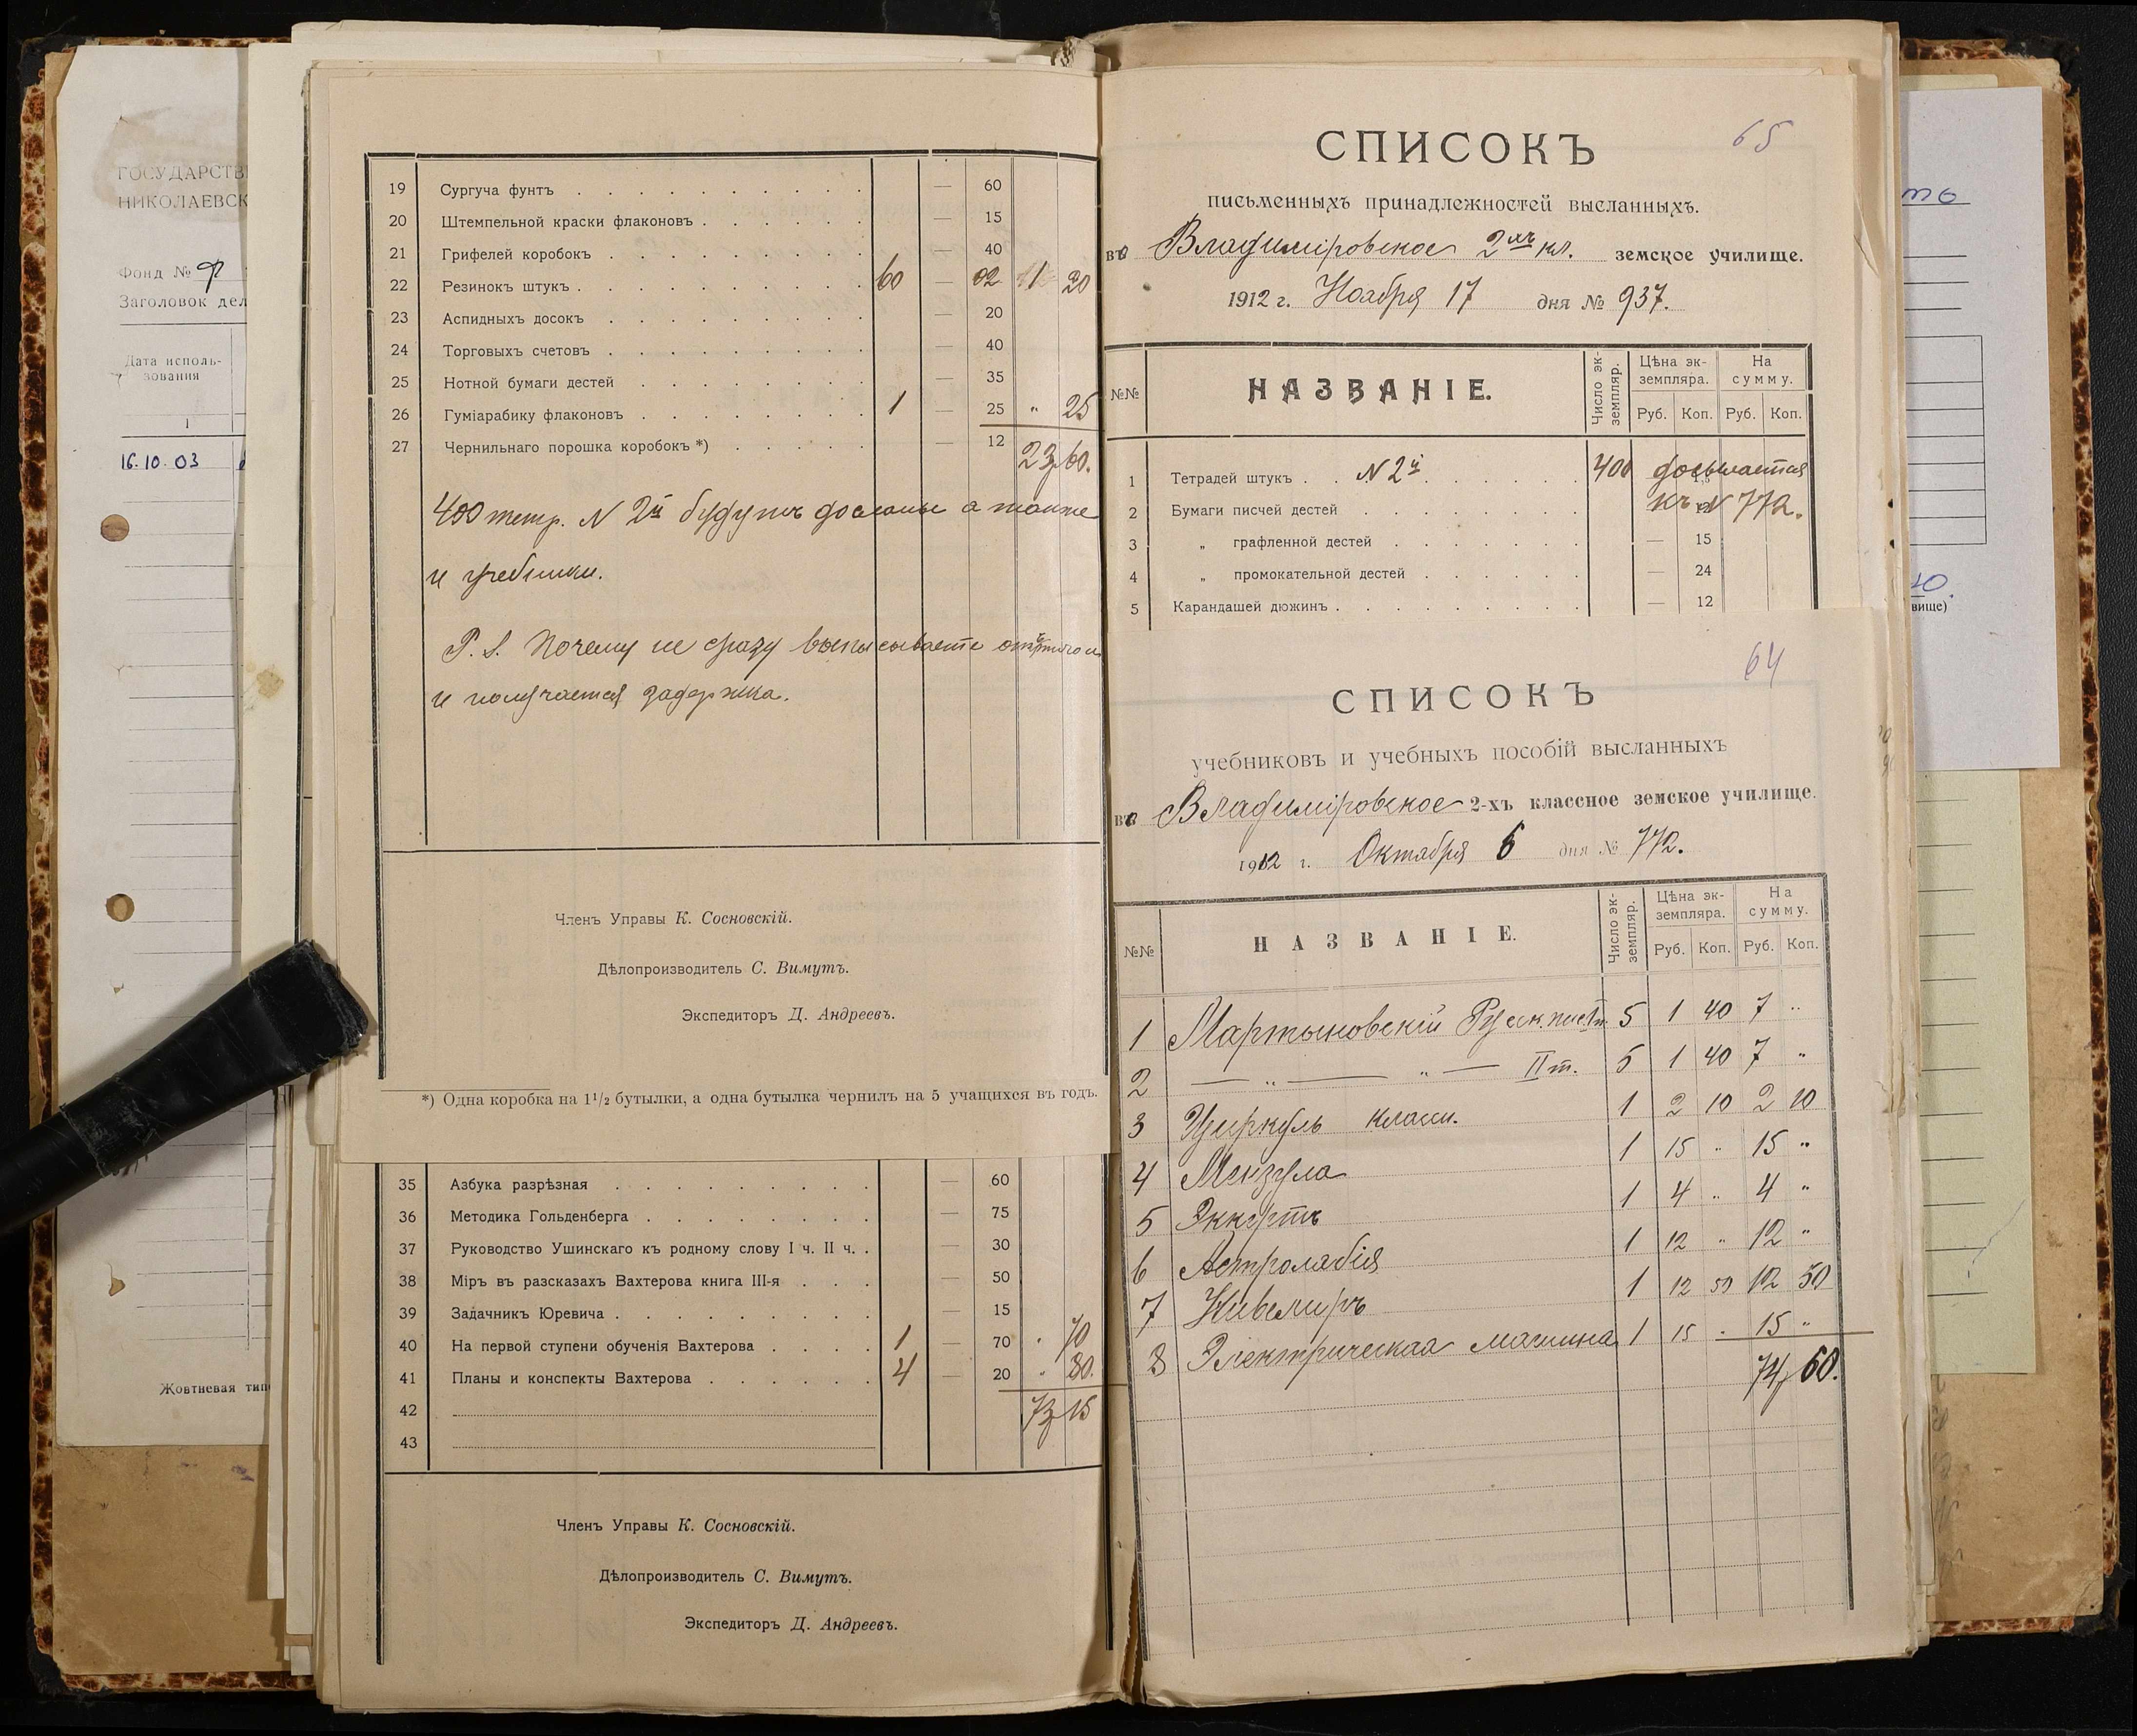 ГОСУДАРСТВ
НИКОЛАЕВСК
Фонд №
Заголовок дел
Дата исполь-
зования
1
16.10.03
Жовтневая тип
19 Сургуча фунтъ — 60
20 Штемпельной краски флаконовъ — 15
21 Грифелей коробокъ — 40
22 Резинокъ штукъ 60 — 02 1 20
23 Аспидныхъ досокъ — 20
24 Торговыхъ счетовъ — 40
25 Нотной бумаги дестей — 35
26 Гуміарабику флаконовъ 1 — 25 " 25
27 Чернильнаго порошка коробокъ *) — 12
23,60.
400 тетр. N 2й будутъ досланы а также
и учебники.
P. S. Почему не сразу выписываете
и получается задержка.
Членъ Управы К. Сосновскій.
Дѣлопроизводитель С. Вимутъ.
Экспедиторъ Д. Андреевъ.
*) Одна коробка на 1¹/₂ бутылки, а одна бутылка чернилъ на 5 учащихся въ годъ.
35 Азбука разрѣзная — 60
36 Методика Гольденберга — 75
37 Руководство Ушинскаго къ родному слову I ч. II ч. — 30
38 Міръ въ разсказахъ Вахтерова книга III-я — 50
39 Задачникъ Юревича — 15
40 На первой ступени обученія Вахтерова 1 — 70 " 70
41 Планы и конспекты Вахтерова 4 — 20 " 80.
42 73,15
43
Членъ Управы К. Сосновскій.
Дѣлопроизводитель С. Вимутъ.
Экспедиторъ Д. Андреевъ.
65
СПИСОКЪ
письменныхъ принадлежностей высланныхъ.
въ Владиміровское 2хъ кл. земское училище.
1912 г. Ноября 17 дня № 937.
№№ НАЗВАНІЕ. Число эк-земпляр. Цѣна эк-земпляра. На сумму.
Руб. Коп. Руб. Коп.
1 Тетрадей штукъ N 2й 400 досылается
2 Бумаги писчей дестей къ N 772.
3 „ графленной дестей — 15
4 „ промокательной дестей — 24
5 Карандашей дюжинъ — 12
64
СПИСОКЪ
учебниковъ и учебныхъ пособій высланныхъ
въ Владиміровское 2-хъ классное земское училище.
1912 г. Октября 6 дня № 772.
№№ НАЗВАНІЕ. Число эк-земпляр. Цѣна эк-земпляра. На сумму.
Руб. Коп. Руб. Коп.
1 Мартыновскій Русск. 5 1 40 7 "
2 — " — " — II т. 5 1 40 7 "
3 Циркуль классн. 1 2 10 2 10
4 Мензула 1 15 " 15 "
5 Эккертъ 1 4 " 4 "
6 Астролябія 1 12 " 12 "
7 Нивелиръ 1 12 50 12 50
8 Электрическая машина 1 15 " 15 "
74,60.
то
вище)